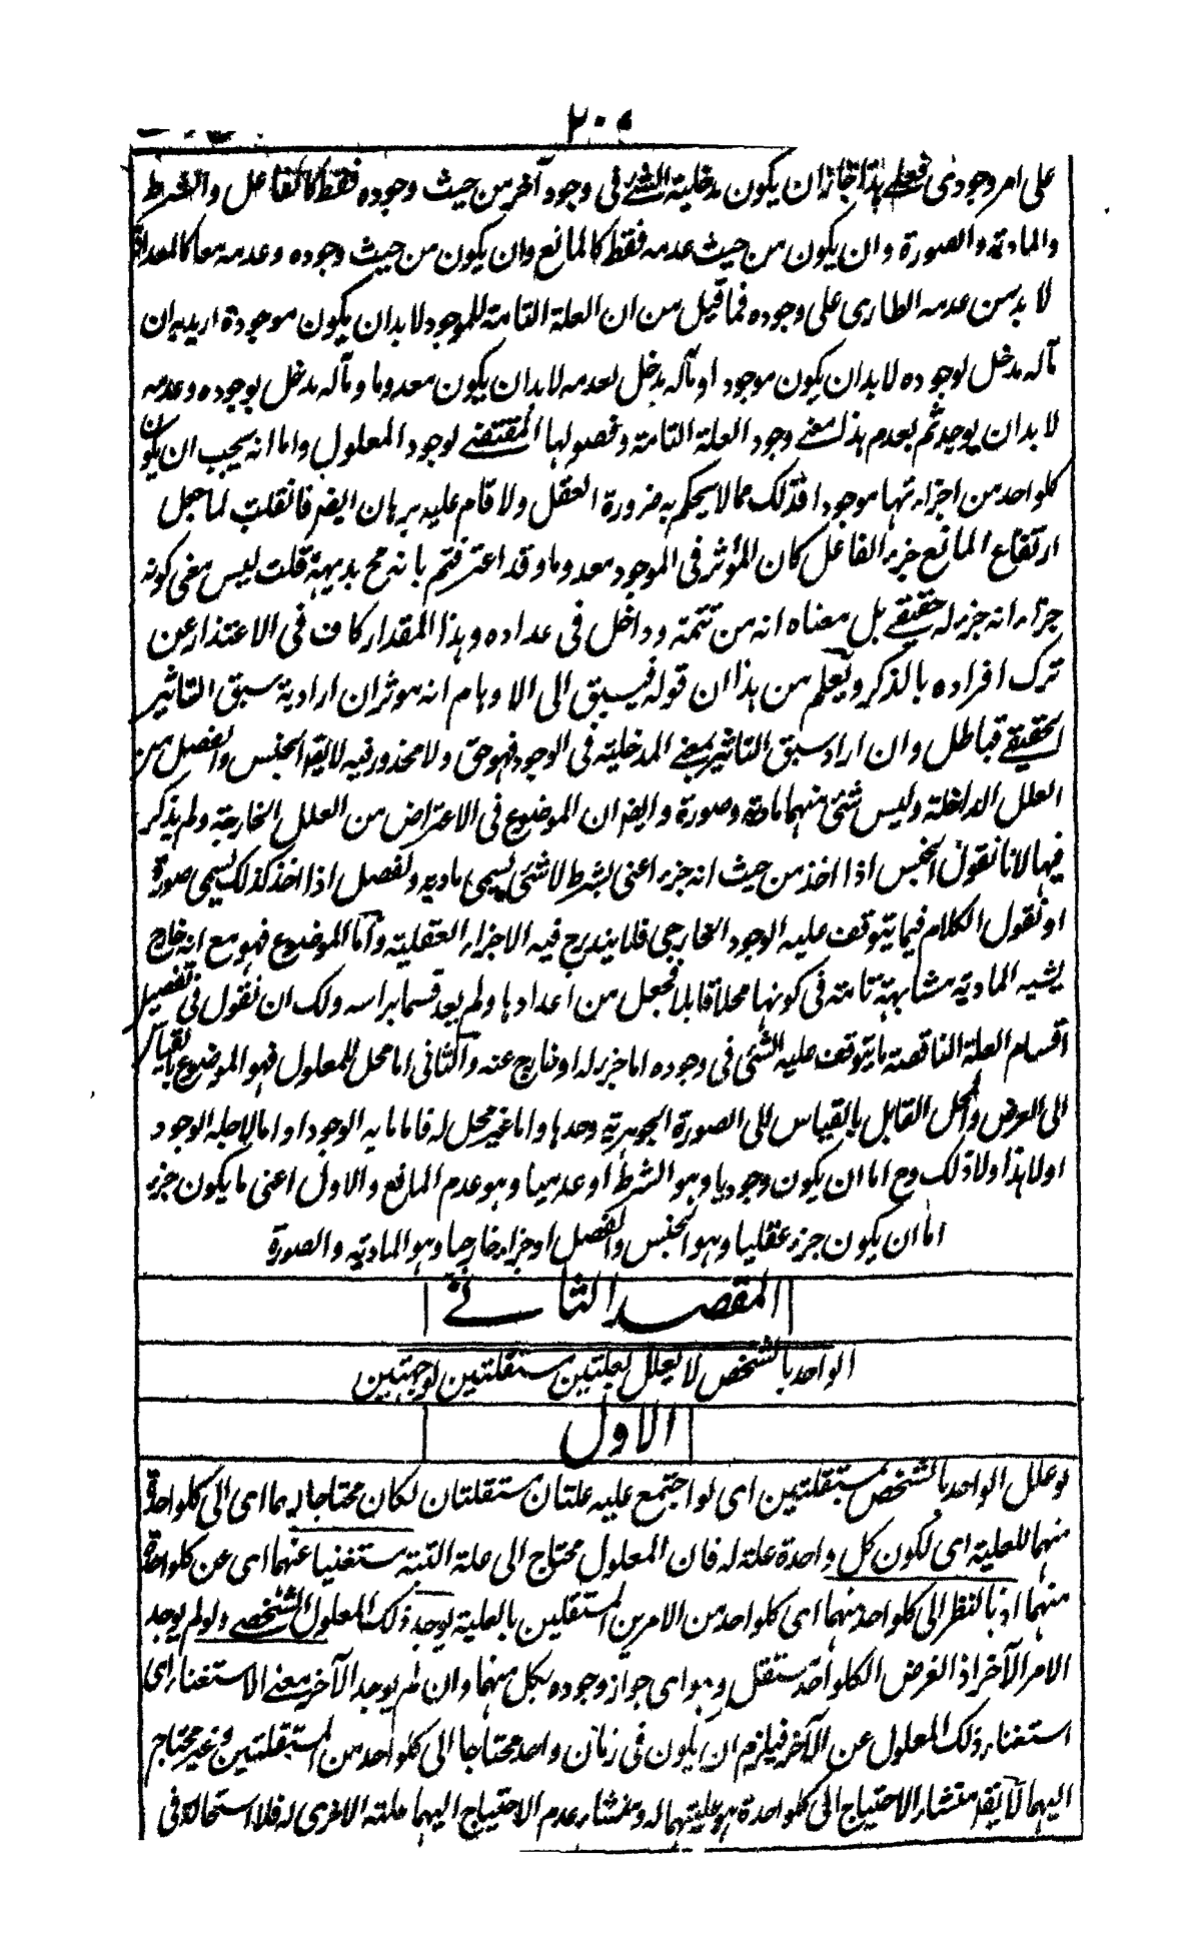 ٢٠٥
على امر وجودى فعلى هذا جاز ان يكون مدخلية الشئ فى وجود آخر من حيث وجوده فقط كالفاعل والشرط
والمادة والصورة وان يكون من حيث عدمه فقط كالمانع وان يكون من حيث وجوده وعدمه معا كالمعد اذ
لا بد من عدمه الطارى على وجوده فما قيل من ان العلة التامة للموجود لا بد ان يكون موجودة اريد به ان
ماله مدخل لوجوده لا بد ان يكون موجودا وماله مدخل لعدمه لا بد ان يكون معدوما وماله مدخل بوجوده وعدمه
لا بد ان يوجد ثم يعدم هذا معنے وجود العلة التامة وحصولها المقتضے لوجود المعلول واما انه يجب ان يكون
كلواحد من اجزائها موجودا فذلك مما لا يحكم به ضرورة العقل ولا قام عليه برهان ايضا فان قلت لما جعل
ارتفاع المانع جزء الفاعل كان المؤثر فى الموجود معدوما وقد اعترفتم بانه مح بديهة قلت ليس معنى كونه
جزاء انه جزء له حقيقے بل معناه انه من تتمته وداخل فى عداده وهذا المقدار كاف فى الاعتذار عن
ترك افراده بالذكر ويعلم من هذا ان قوله فيسبق الى الاوهام انه موثر ان اراد به سبق التاثير
الحقيقے فباطل وان اراد سبق التاثير بمعنے المدخلية فى الوجود فهو حق ولا محذور فيه لا يقو الجنس والفصل من
العلل الداخلة وليس شئ منهما مادة وصورة وايضا ان الموضوع فى الاعتراض من العلل الخارجة ولم يذكر
فيها لانا نقول الجنس اذا اخذ من حيث انه جزء اعنى بشرط لا شئ يسمى مادة والفصل اذا اخذ كذلك يسمى صورة
او نقول الكلام فيما يتوقف عليه الوجود الخارجى فلا يندرج فيه الاجزاء العقلية واما الموضوع فهو مع انه خارج
يشبه المادية مشابهة تامة فى كونها محلا قابلا فجعل من اعدادها ولم يعد قسما براسه ولك ان نقول فى تفصيل
اقسام العلة الناقصة ما يتوقف عليه الشئ فى وجوده اما جزء له او خارج عنه والثانى اما محل للمعلول فهو الموضوع بالقياس
الى العرض والمحل القابل بالقياس الى الصورة الجوهرية وحدها واما غير محل له فاما ما به الوجود او اما لاجله الوجود
او لا هذا ولا ذلك وح اما ان يكون وجوديا وهو الشرط او عدميا وهو عدم المانع والاول اعنى ما يكون جزء
اما ان يكون جزء عقليا وهو الجنس والفصل او جزاء خارجيا وهو المادية والصورة
المقصد الثانے
الواحد بالشخص لا يعلل بعلتين مستقلتين لوجهين
الاول
لو علل الواحد بالشخص بمستقلتين اى لو اجتمع عليه علتان مستقلتان لكان محتاجا اليهما اى الى كلواحدة
منهما للعلية اى لكون كل واحدة علة له فان المعلول محتاج الى علة البتة مستغنيا عنهما اى عن كلواحدة
منهما اذ بالنظر الى كلواحد منهما اى كلواحد من الامرين المستقلين بالعلية يوجد ذلك المعلول الشخصے ولو لم يوجد
الامر الآخر اذ الفرض ان كلواحد مستقل وهو اى جواز وجوده بكل منهما وان لم يوجد الآخر معنے الاستغناء اى
استغناء ذلك المعلول عن الآخر فيلزم ان يكون فى زمان واحد محتاجا الى كلواحد من المستقلتين وغير محتاج
اليهما لا يقو منشاء الاحتياج الى كلواحدة هو عليتهما له ومنشاء عدم الاحتياج اليهما علته الاخرى له فلا استحالة فى